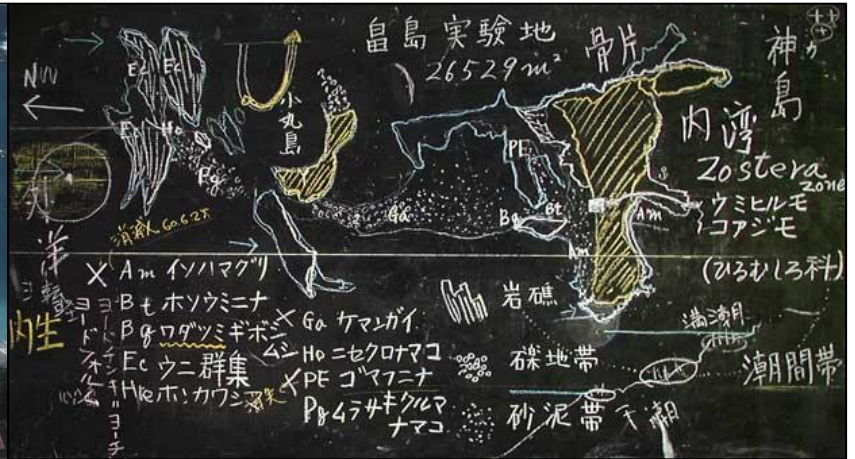 畠島実験地
26529m²
骨片
神島
内湾
Zostera
zone
ウミヒルモ
コアジモ
(ひるむしろ科)
NW
小丸島
Ec
Ec
Ec
Ho
Pg
Ga
PE
Bg
Bt
Am
Am
S
消滅
内生
× Am イソハマグリ
Bt ホソウミニナ
Bg ワダツミギボシムシ
Ec ウニ群集
× Ga ケマンガイ
Ho ニセクロナマコ
× PE ゴマフニナ
Pg ムラサキクルマナマコ
岩礁
礫地帯
砂泥帯
満潮
干潮
潮間帯